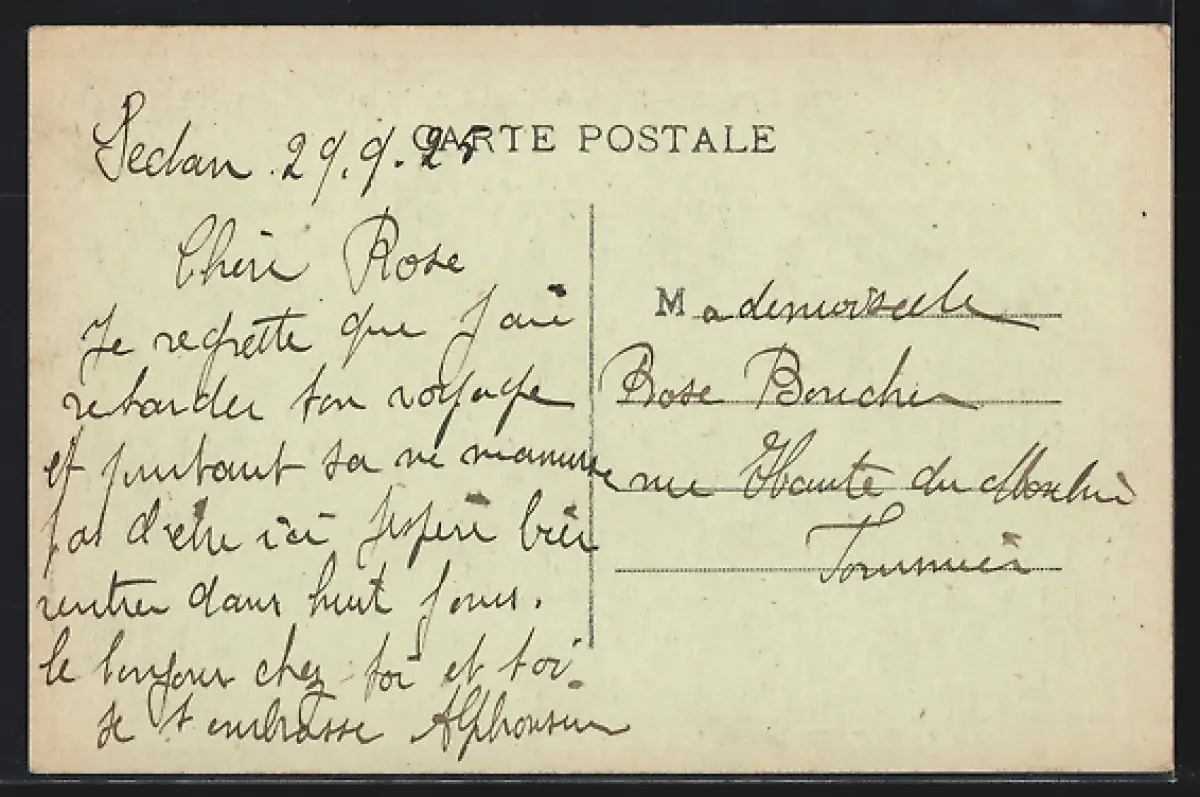 CARTE POSTALE
Sedan 29.9.25
Chère Rose
Je regrette que j'ai
retarder ton voyage
et pourtant sa ne m'amuse
pas d'etre ici j'espère bien
rentrer dans huit jours.
le bonjour chez toi et toi
je t'embrasse Alphonsine
Mademoiselle
Rose Boucher
rue Haute du